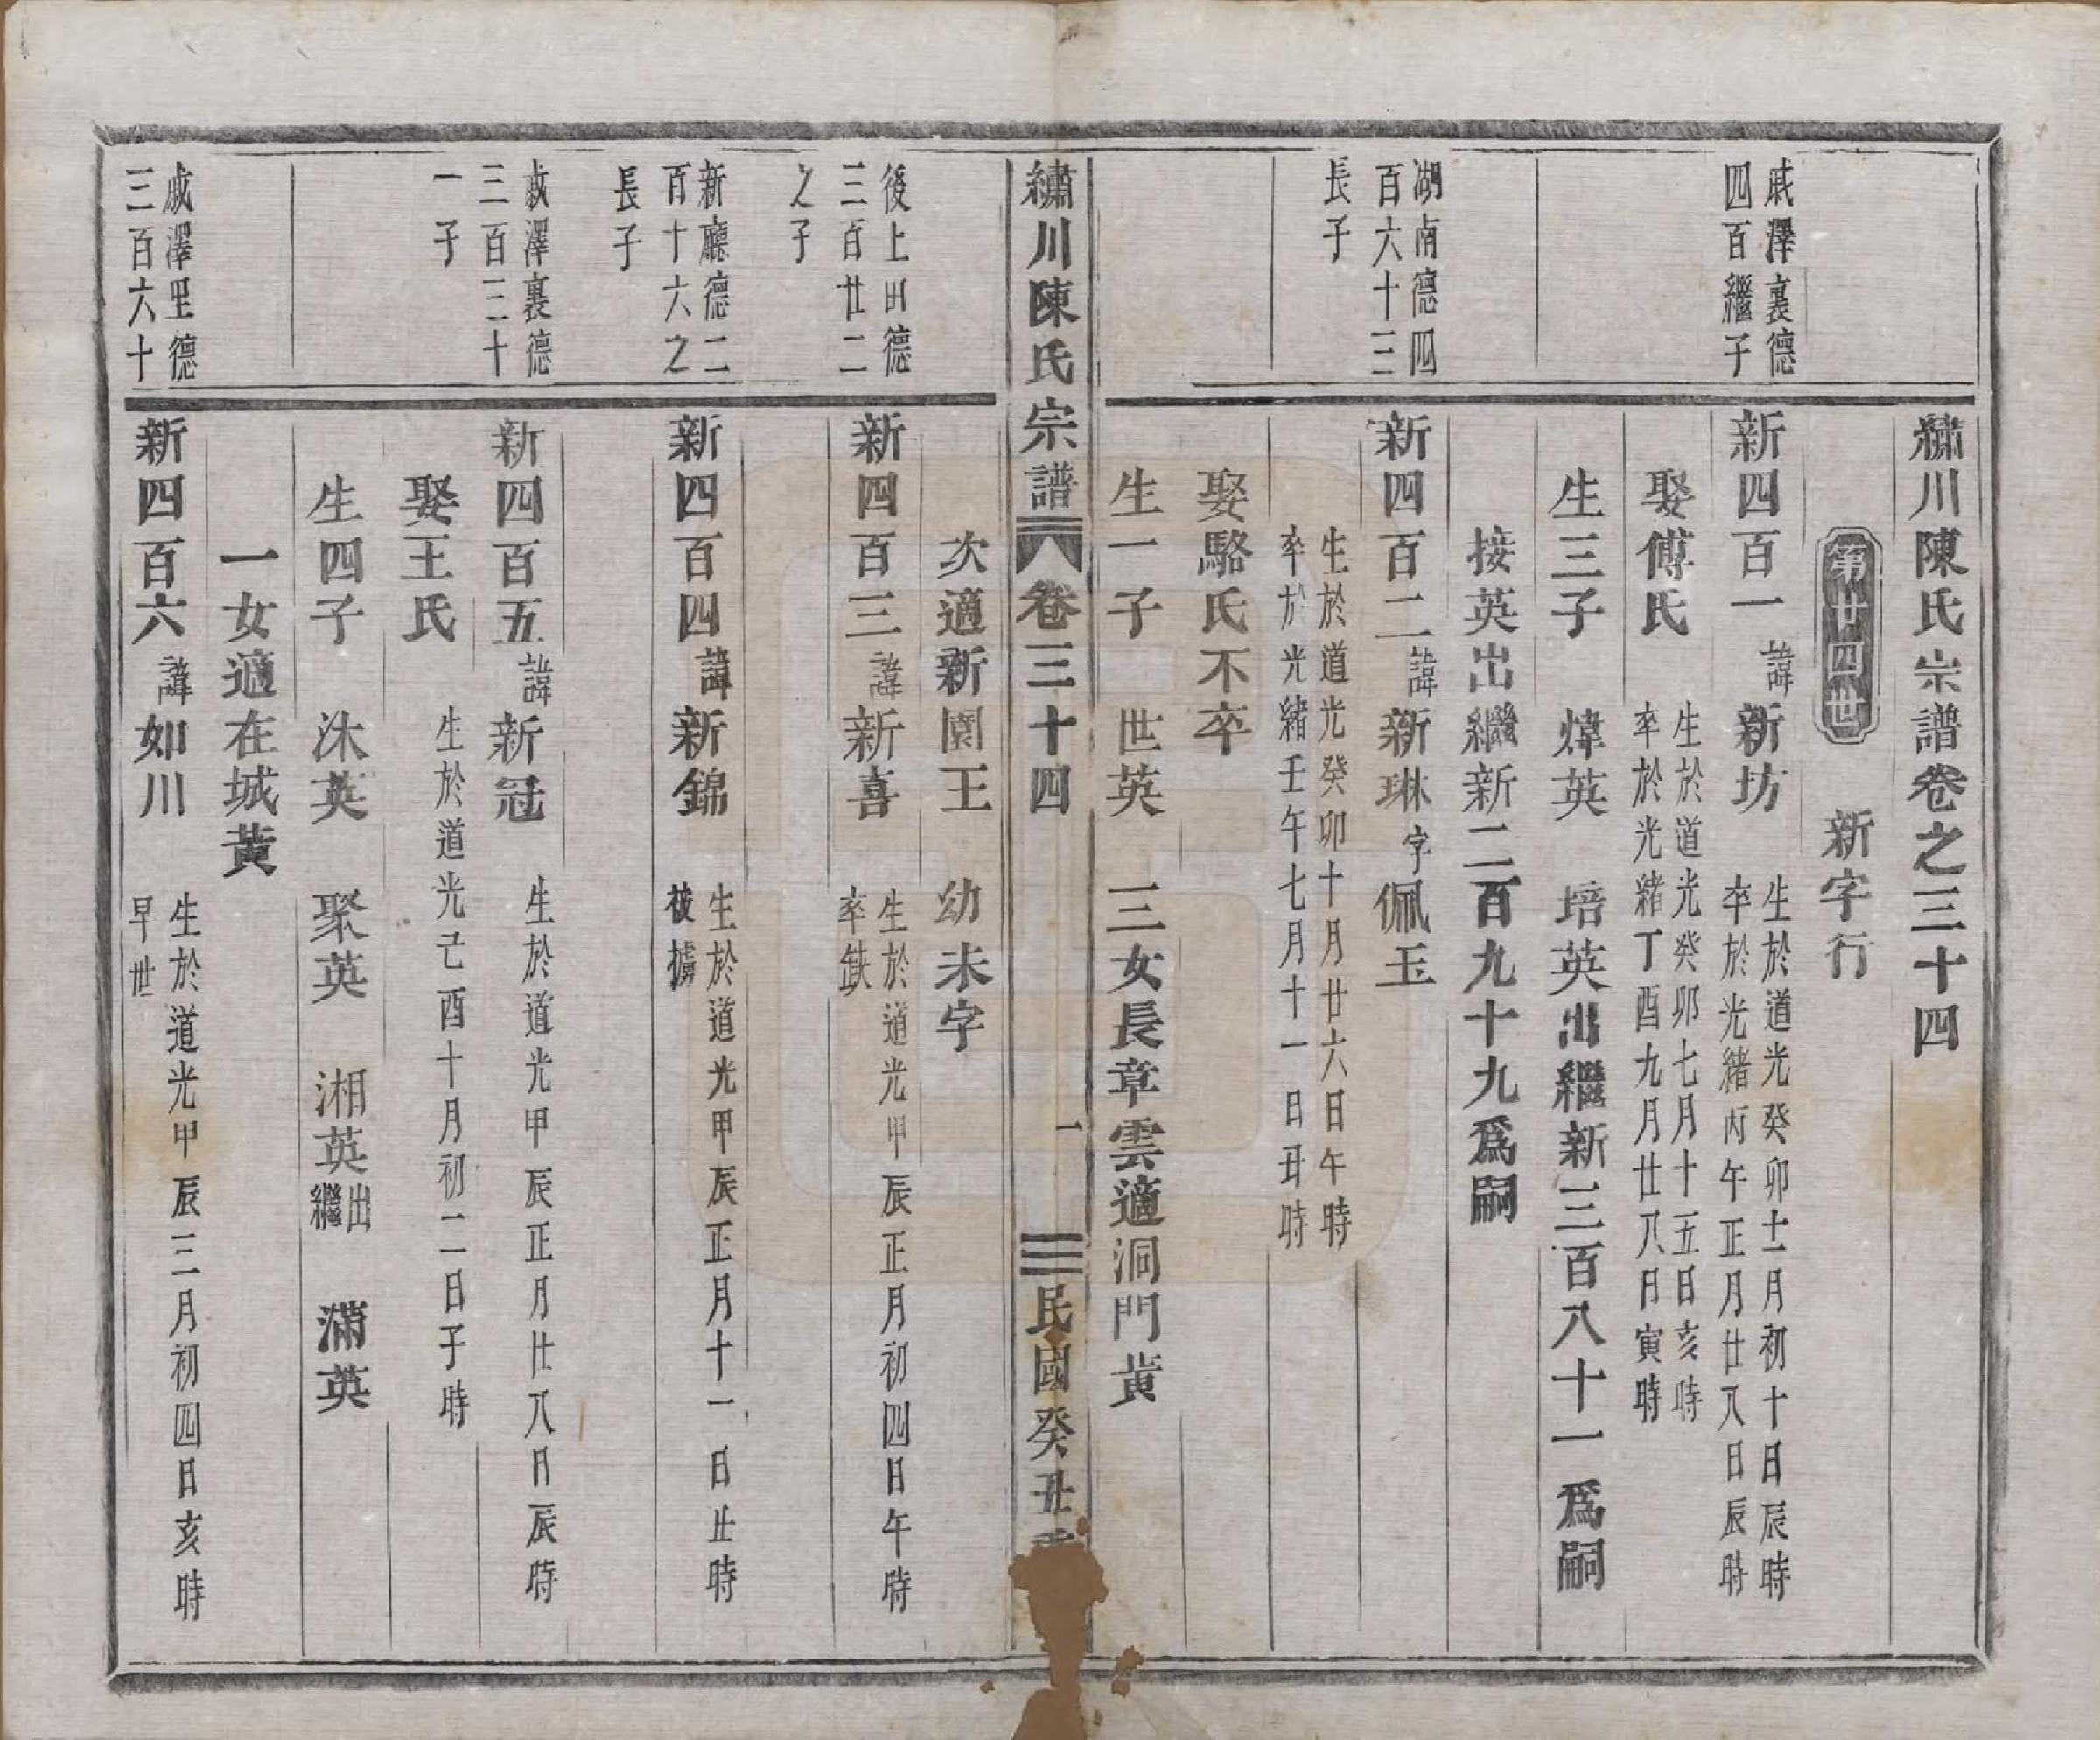 繡川陳氏宗譜卷之三十四
第廿四世
新字行
戚澤裏德
四百繼子
新四百一諱新坊
生於道光癸卯十二月初十日辰時
卒於光緒丙午正月廿八日辰時
娶傅氏
生於道光癸卯七月十五日亥時
卒於光緒丁酉九月廿八日寅時
生三子 煒英 培英出繼新三百八十一爲嗣
接英出繼新二百九十九爲嗣
湖南德四
百六十三
長子
新四百二諱新琳字佩玉
生於道光癸卯十月廿六日午時
卒於光緒壬午七月十一日丑時
娶駱氏不卒
生一子 世英 三女長章雲適洞門黄
繡川陳氏宗譜 卷三十四 一 民國癸丑
次適新園王 幼未字
後上田德
三百廿二
之子
新四百三諱新喜
生於道光甲辰正月初四日午時
卒缺
新廳德二
百十六之
長子
新四百四諱新錦
生於道光甲辰正月十一日丑時
被擄
戚澤裏德
三百三十
一子
新四百五諱新冠
生於道光甲辰正月廿八日辰時
娶王氏
生於道光己酉十月初二日子時
生四子 沐英 聚英 湘英出繼 滿英
一女適在城黄
戚澤里德
三百六十
新四百六諱如川
生於道光甲辰三月初四日亥時
早世